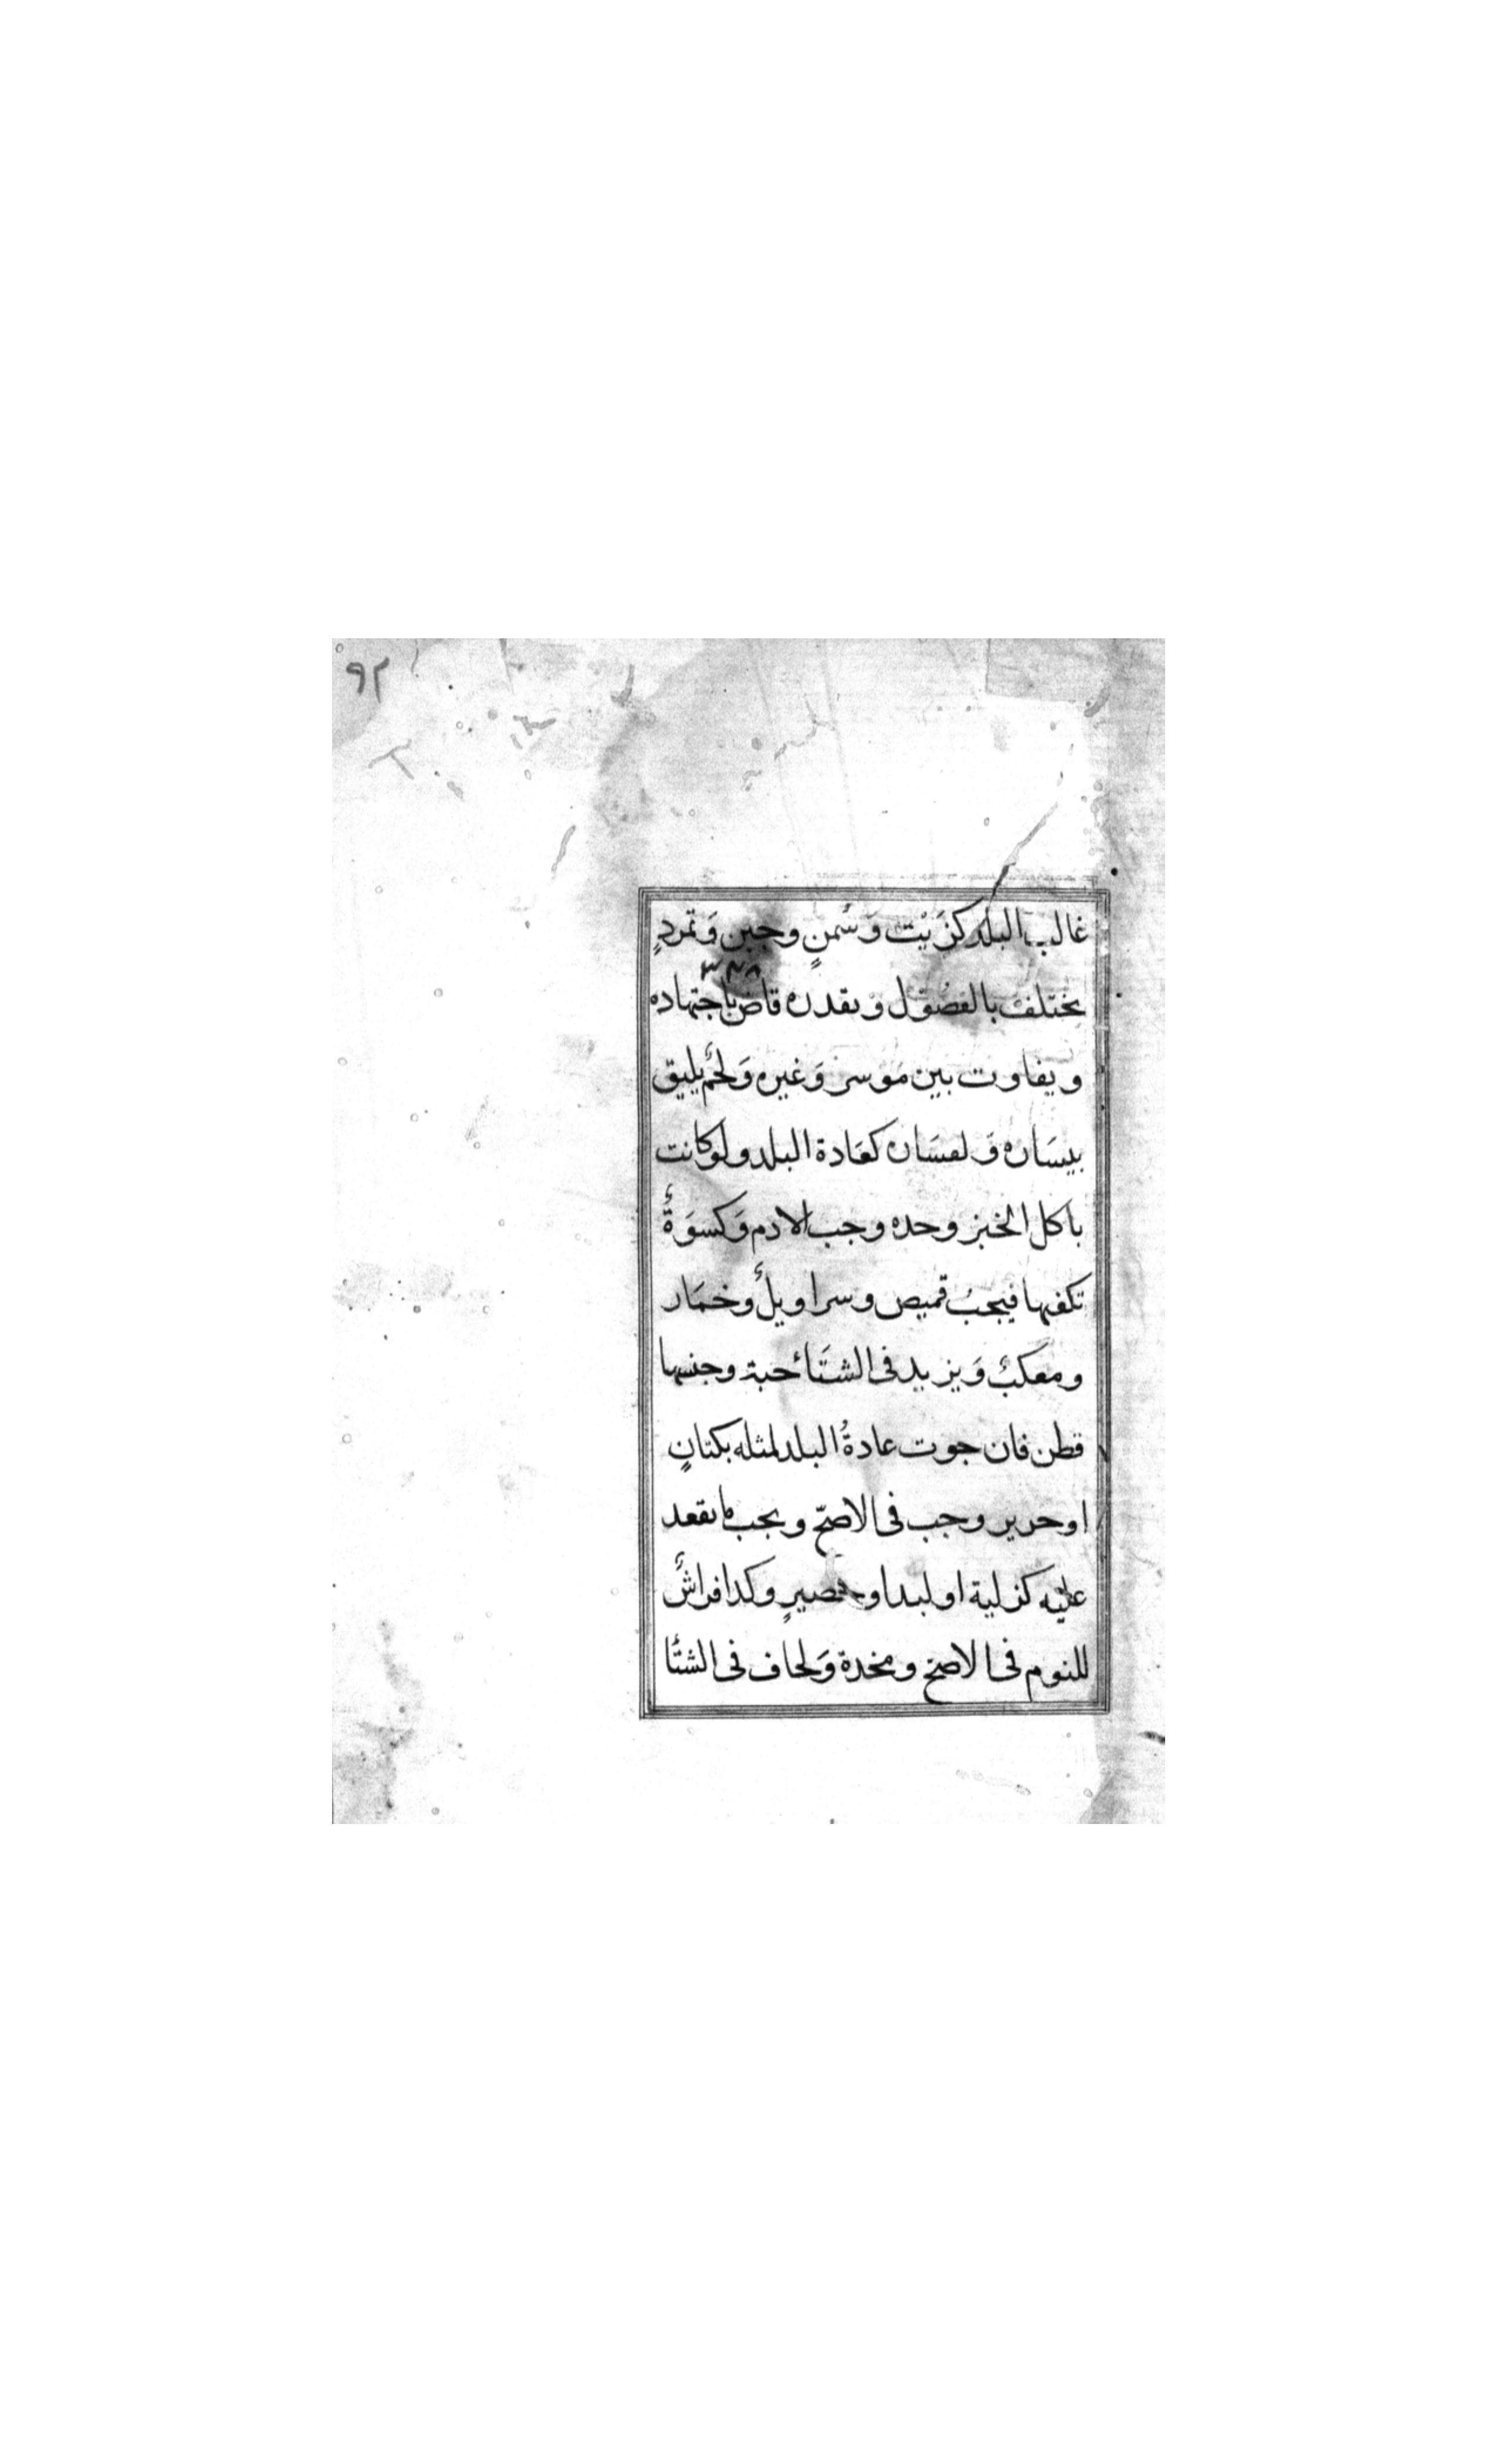 ٩٢
غالب البلد كزَيْت وَسَمنٍ وجبن وَتمردٍ
٣٣٨
يختلف بالفصُوْل وَيقدره قاض باجتهاده
ويفاوت بين مَوسر وَغيره وَلحْم يليق
بيسَاره وَ كعَادة البلد ولو كانت
باكل الخبز وحده وجب الادم وَكسوَةٌ
تكفيها فيجبُ قميص وسراويلٌ وخمَار
ومعكبٌ وَيزيد فى الشتَاء حبة وجنسها
قطن فان جوت عادةُ البلد لمثله بكتانٍ
او حرير وجب فى الاصحّ ويجب ما تقعد
عليْه كزلية او لبد او حصيرٍ وكدا فراشٌ
للنوم فى الاصح ومخدة وَلحاف فى الشتا